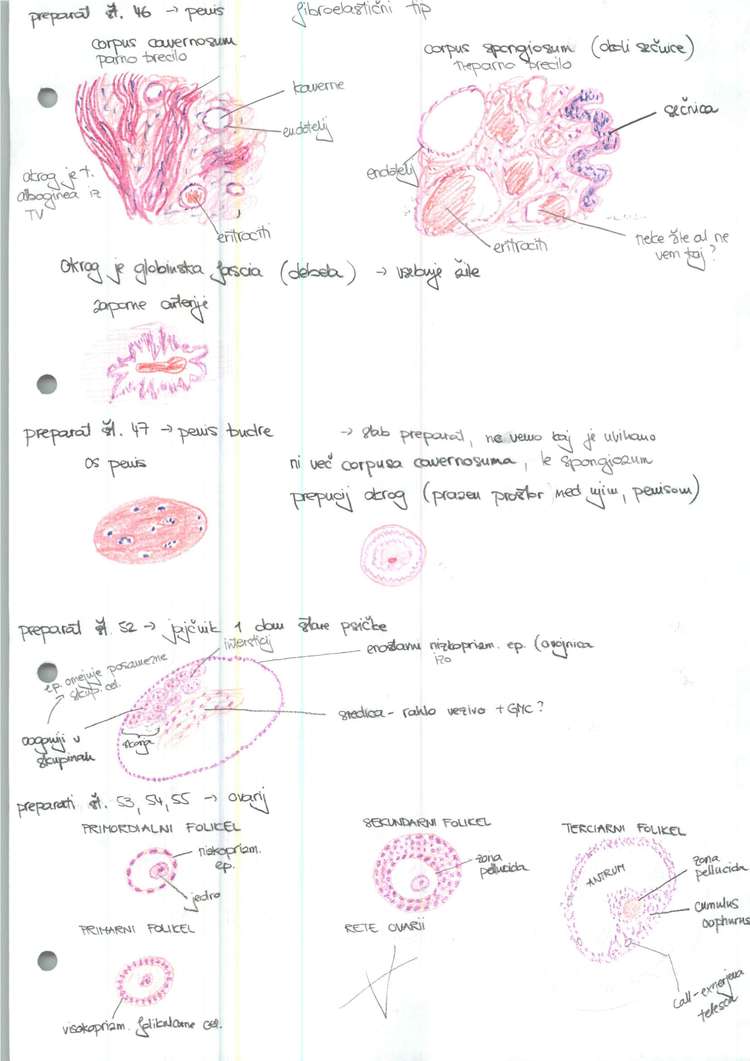 preparat št. 46 → penis fibroelastični tip
corpus cavernosum
parno brecilo
corpus spongiosum (okoli sečnice)
neparno brecilo
kaverne
endotelij
eritrociti
okrog je t.
albuginea iz
TV
sečnica
endotelij
eritrociti
neke žile al ne
vem kaj?
Okrog je globinska fascia (debela) → vsebuje žile
zaporne arterije
preparat št. 47 → penis budre → slab preparat, ne vemo kaj je uvihano
os penis
ni več corpusa cavernosuma, le spongiozum
prepucij okrog (prazen prostor med njim, penisom)
preparat št. 52 → jajčnik 1 dan stare psičke
intersticij
enostavni nizkoprizm. ep. (ovojnica
izo
ep. omejuje posamezne
skup. cel.
oogoniji v
skupinah
skorja
sredica - rahlo vezivo + GMC?
preparati št. 53, 54, 55 → ovarij
PRIMORDIALNI FOLIKEL
nizkoprizm.
ep.
jedro
SEKUNDARNI FOLIKEL
zona
pellucida
TERCIARNI FOLIKEL
ANTRUM
zona
pellucida
cumulus
oophurus
call-exnerjeva
telesca
PRIMARNI FOLIKEL
visokoprizm. folikularne cel.
RETE OVARII